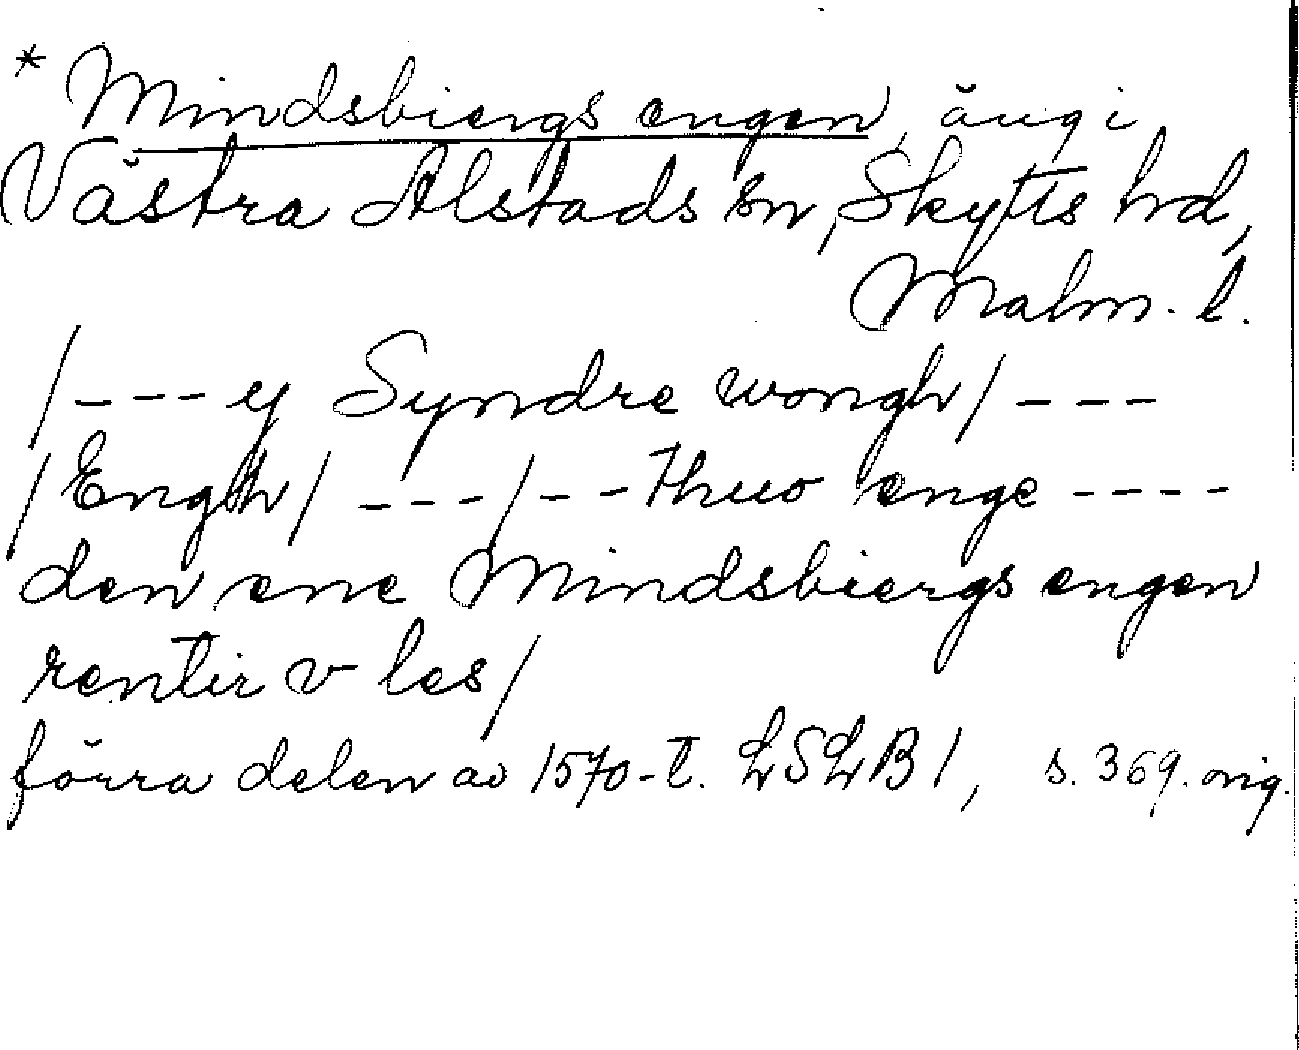 * Mindsbiergs engen, äng i
Västra Alstads sn, Skytts hd,
Malm. l.
/---- ej Syndre wongh/ ---
/Engh/ ---/--- thuo enge ----
den ene Mindsbiergs engen
rentir v les/
förra delen av 1570-t. LSLB 1, s. 369. orig.